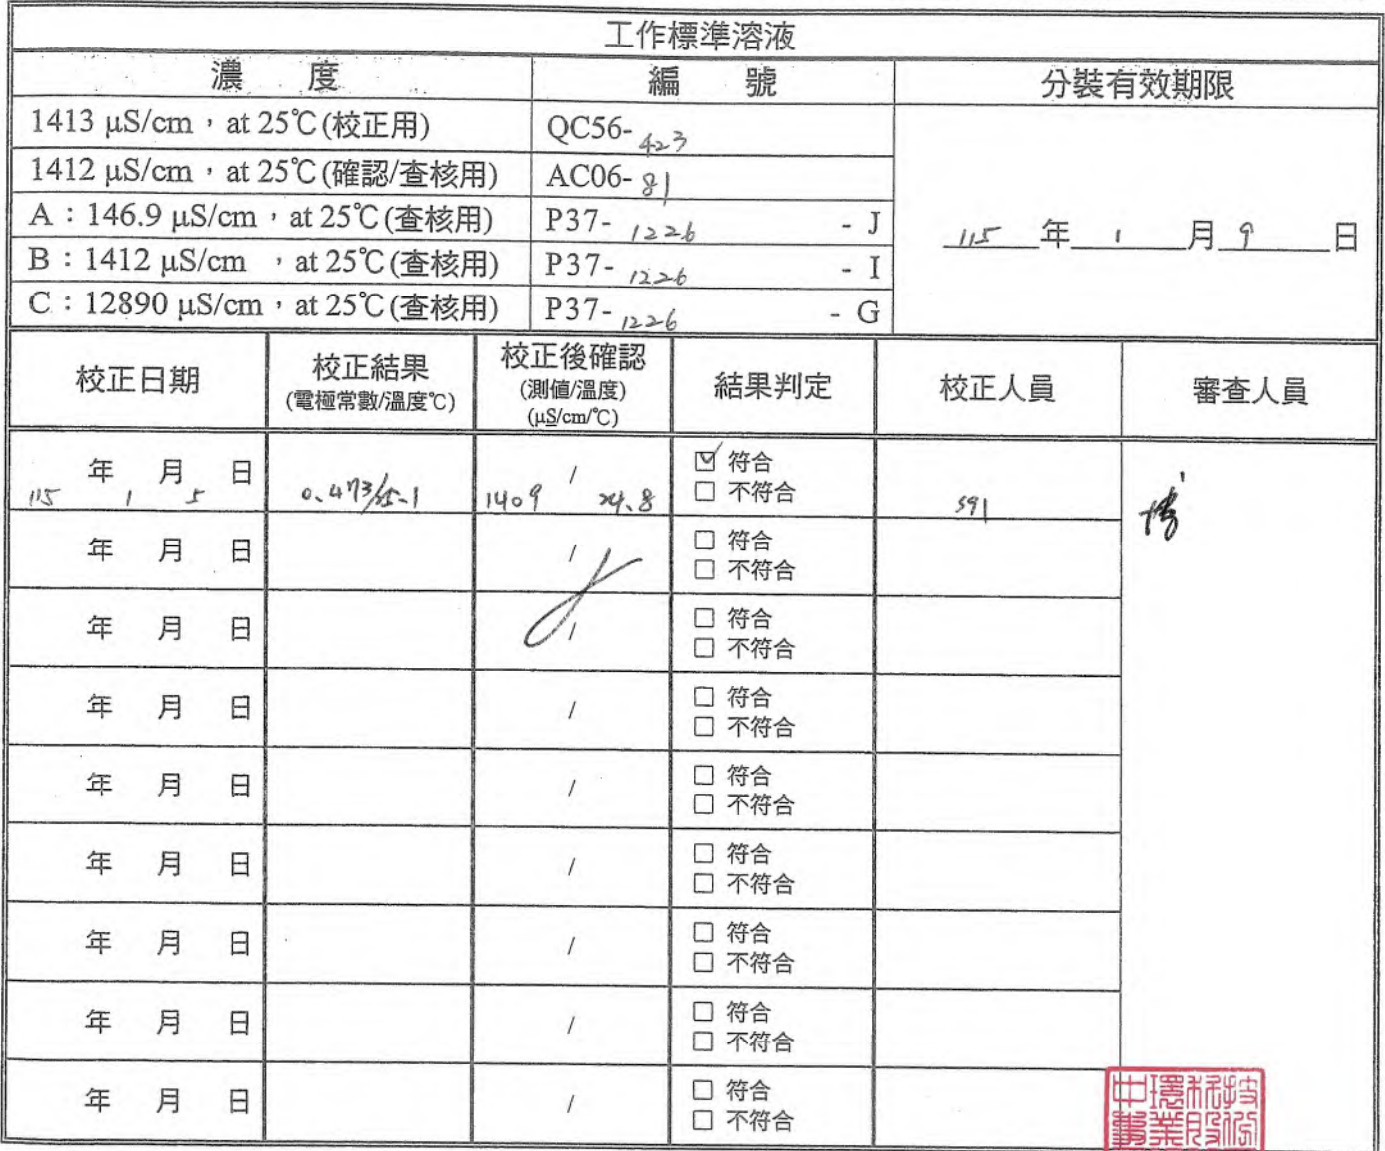 工作標準溶液
濃 度 編 號 分裝有效期限
1413 μS/cm,at 25℃(校正用) QC56-423
1412 μS/cm,at 25℃(確認/查核用) AC06-81
A:146.9 μS/cm,at 25℃(查核用) P37-1226 - J
115年1月9日
B:1412 μS/cm ,at 25℃(查核用) P37-1226 - I
C:12890 μS/cm,at 25℃(查核用) P37-1226 - G
校正日期 校正結果 (電極常數/溫度℃) 校正後確認 (測值/溫度) (μS/cm/℃) 結果判定 校正人員 審查人員
115年1月5日 0.473/25.1 1409 / 24.8 ☑ 符合 591
□ 不符合
年 月 日 / □ 符合
□ 不符合
年 月 日 / □ 符合
□ 不符合
年 月 日 / □ 符合
□ 不符合
年 月 日 / □ 符合
□ 不符合
年 月 日 / □ 符合
□ 不符合
年 月 日 / □ 符合
□ 不符合
年 月 日 / □ 符合
□ 不符合
年 月 日 / □ 符合
□ 不符合
中環科技
事業股份